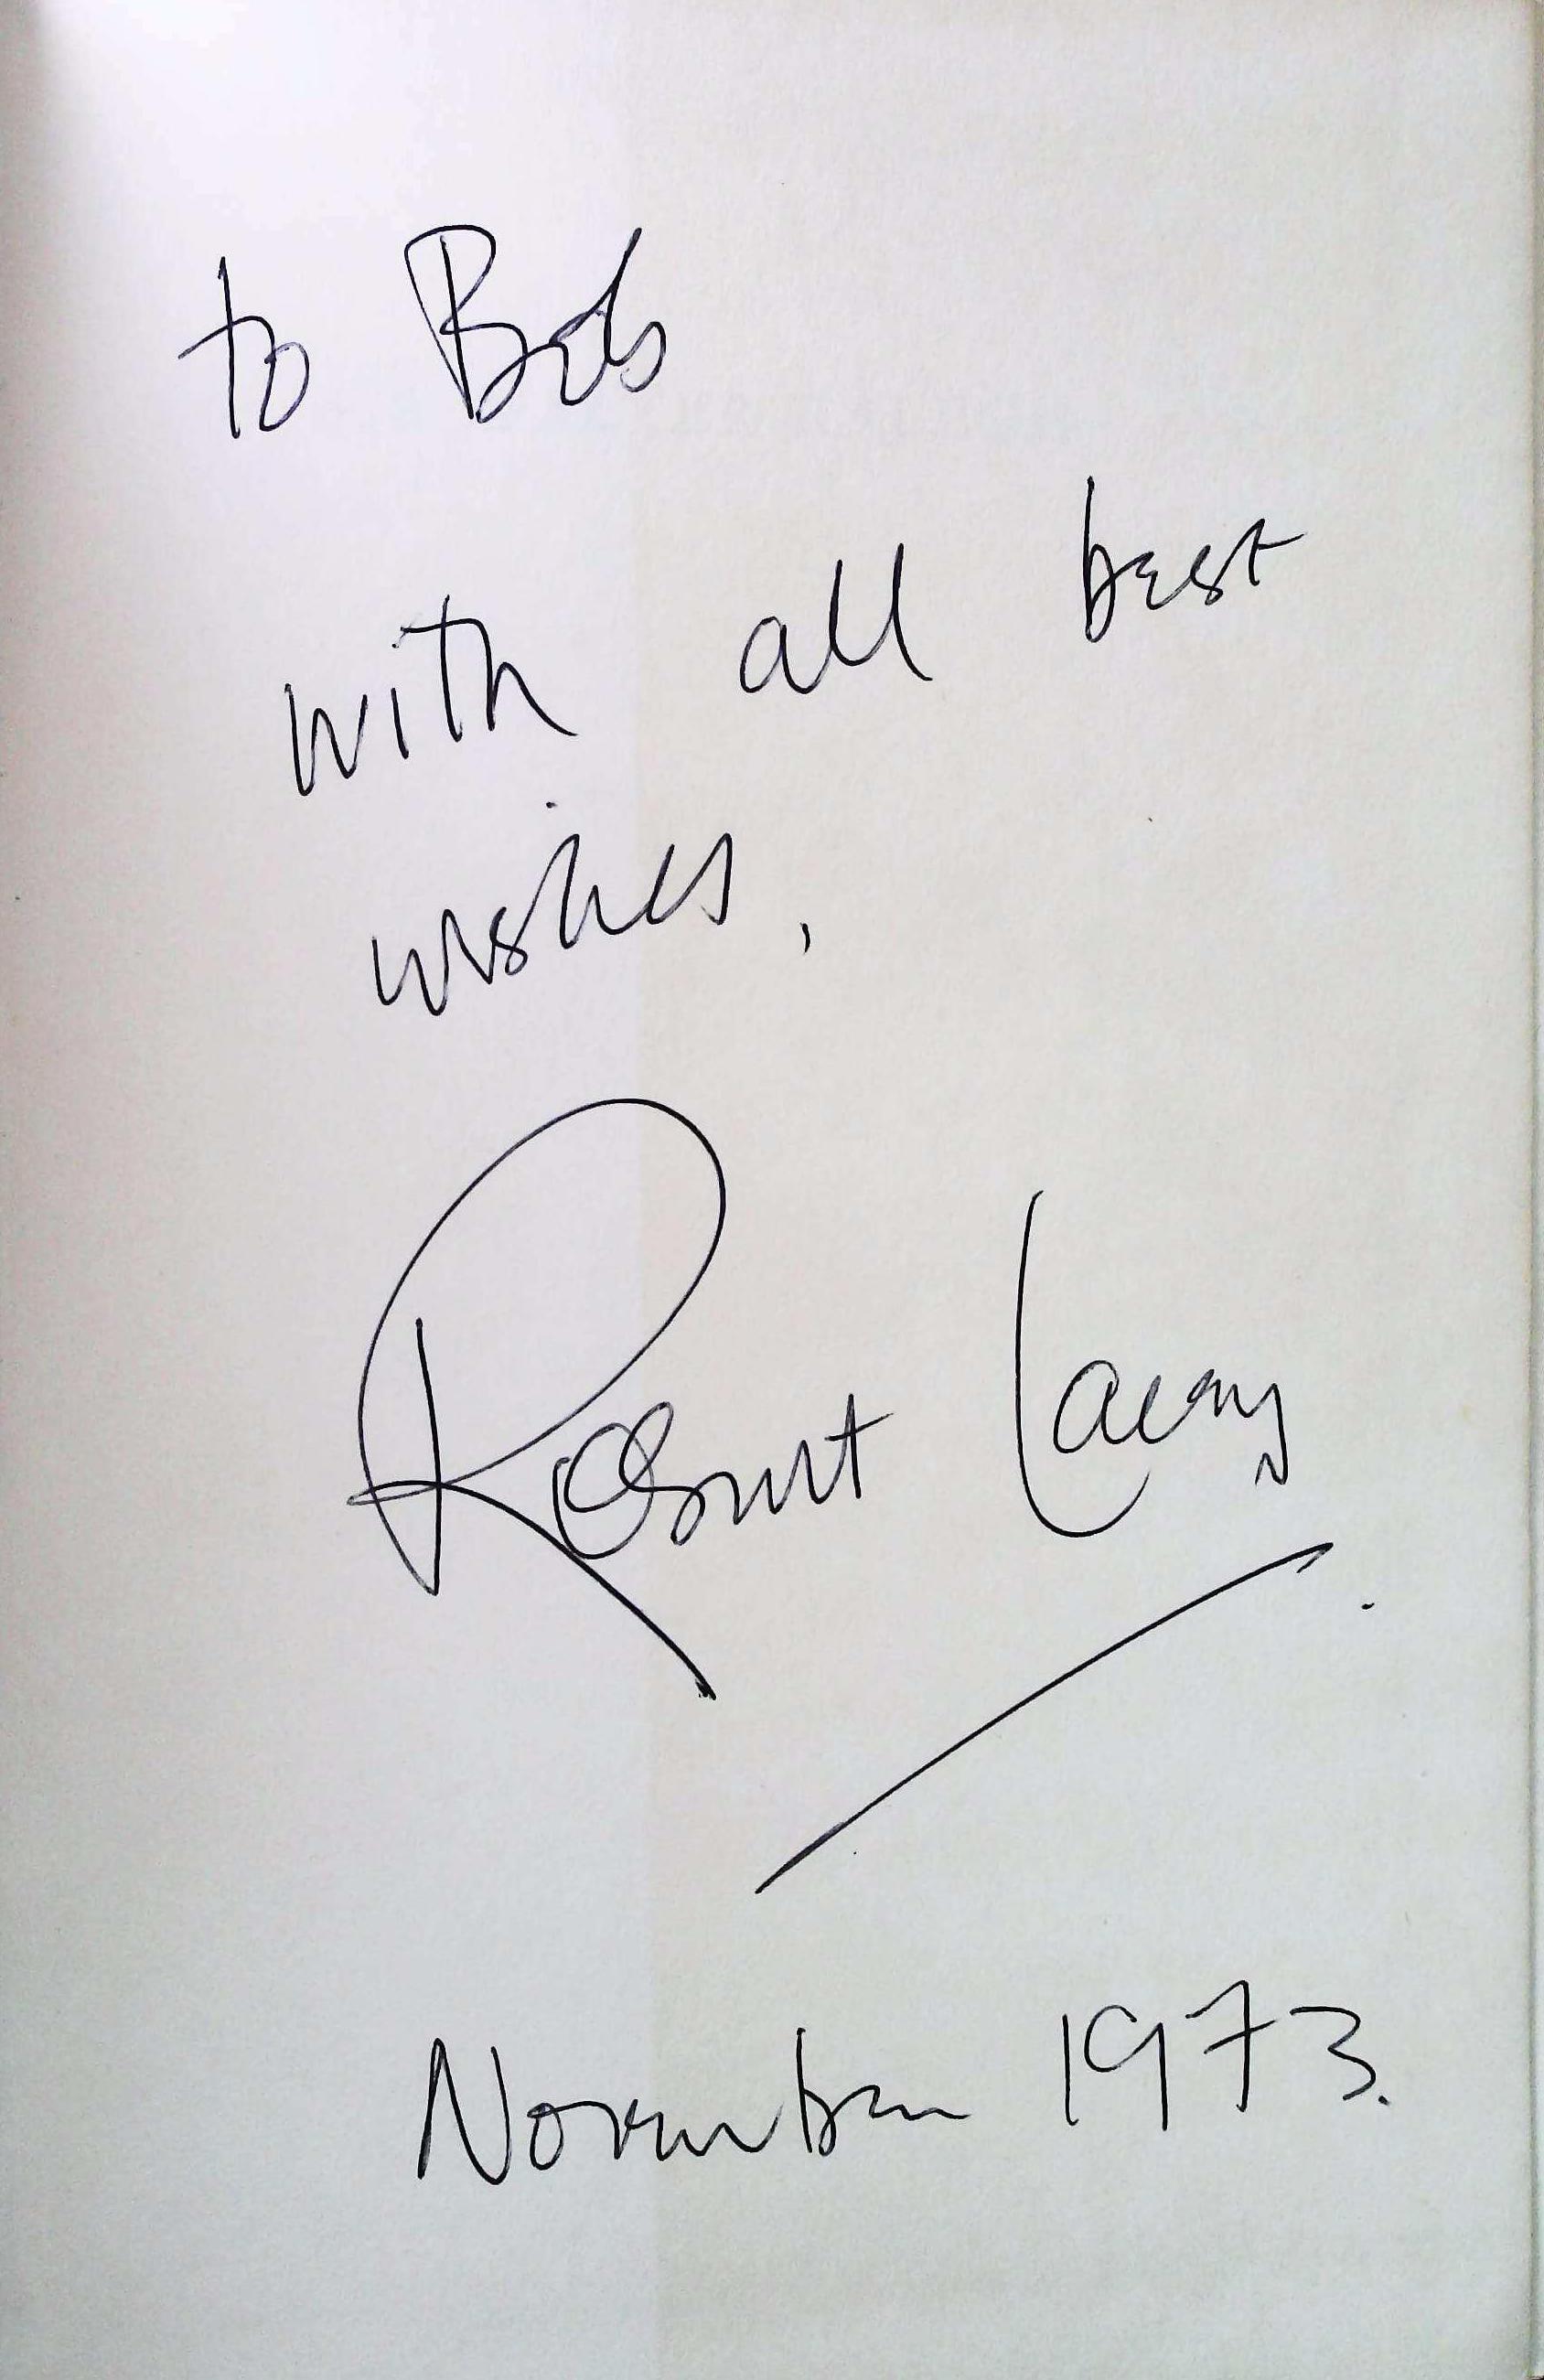 to Bob
with all best
wishes,
Robert Lacey
November 1973.